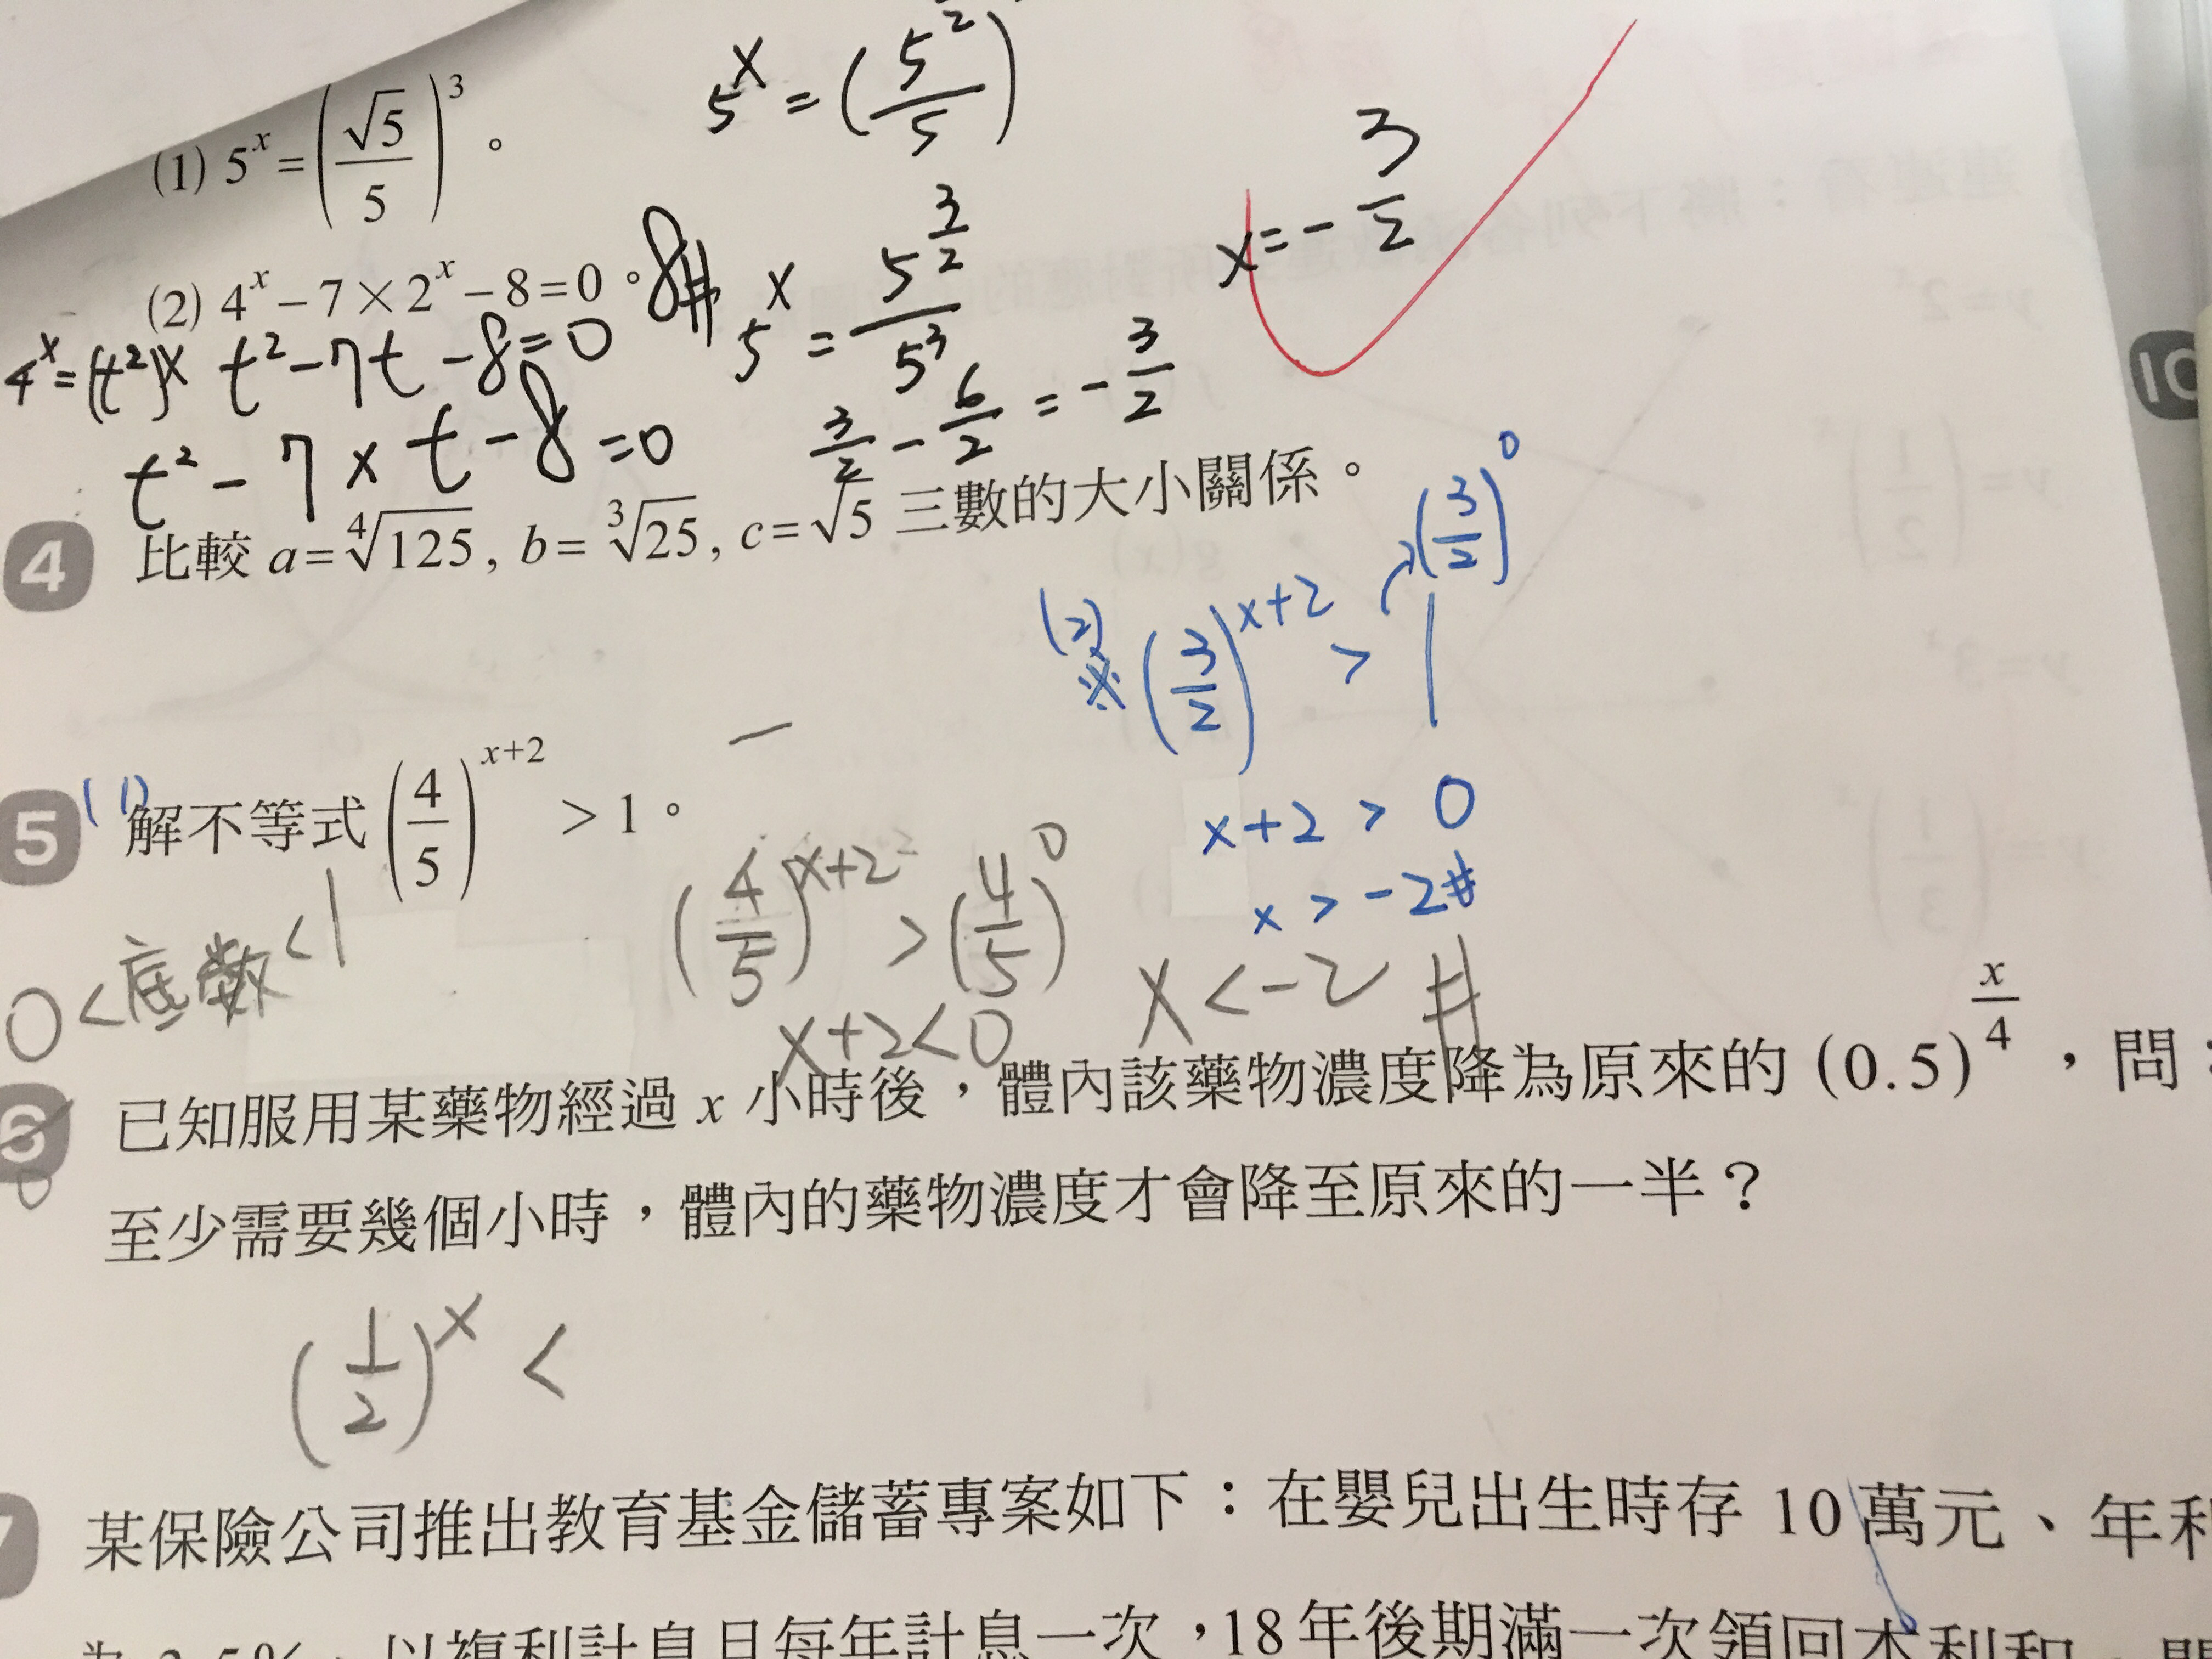 5^x = (5^{\frac{1}{2}}/5)
(1) 5^x = (√5/5)^3 。
x = -3/2
(2) 4^x - 7 × 2^x - 8 = 0 。 8#
5^x = 5^{3/2}/5^3
4^x = (t^2)^x t^2 - 7t - 8 = 0
3/2 - 6/2 = -3/2
t^2 - 7 × t - 8 = 0
4 比較 a = ∜125 , b = ∛25 , c = √5 三數的大小關係。
(3/2)^0
(2) ※ (3/2)^{x+2} > 1
5 (1) 解不等式 (4/5)^{x+2} > 1 。
x+2 > 0
x > -2#
0 < 底數 < 1
(4/5)^{x+2} > (4/5)^0
x+2 < 0
x < -2 #
6 已知服用某藥物經過 x 小時後，體內該藥物濃度降為原來的 (0.5)^{x/4} ，問：
至少需要幾個小時，體內的藥物濃度才會降至原來的一半？
(1/2)^x <
7 某保險公司推出教育基金儲蓄專案如下：在嬰兒出生時存 10 萬元、年利
以複利計息且每年計息一次，18 年後期滿一次領回本利和，
10